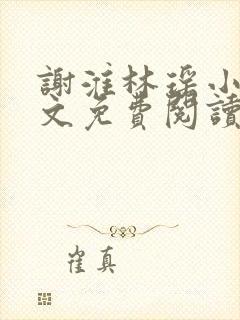 謝淮林瑶小
文免費閱讀
崔真